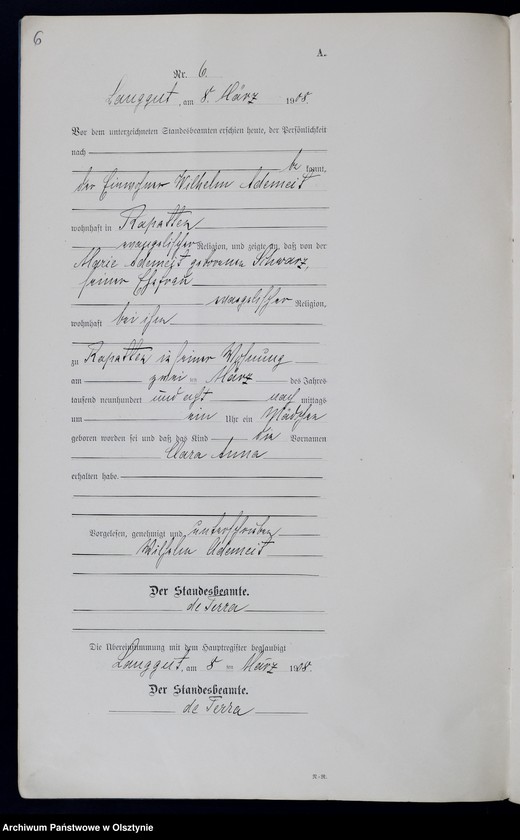 6
A.
Nr. 6.
Langgut, am 8. März 1908.
Vor dem unterzeichneten Standesbeamten erschien heute, der Persönlichkeit
nach
be kannt,
der Einwohner Wilhelm Ademeit
wohnhaft in Rapatten
evangelischer Religion, und zeigte an, daß von der
Marie Ademeit geborenen Schwarz,
seiner Ehefrau
evangelischer Religion,
wohnhaft bei ihm
zu Rapatten in seiner Wohnung
am zwei ten März des Jahres
tausend neunhundert und acht nach mittags
um ein Uhr ein Mädchen
geboren worden sei und daß das Kind die Vornamen
Clara Anna
erhalten habe.
Vorgelesen, genehmigt und unterschrieben
Wilhelm Ademeit
Der Standesbeamte.
de Terra
Die Übereinstimmung mit dem Hauptregister beglaubigt
Langgut, am 8 ten März 1908.
Der Standesbeamte.
de Terra
Archiwum Państwowe w Olsztynie